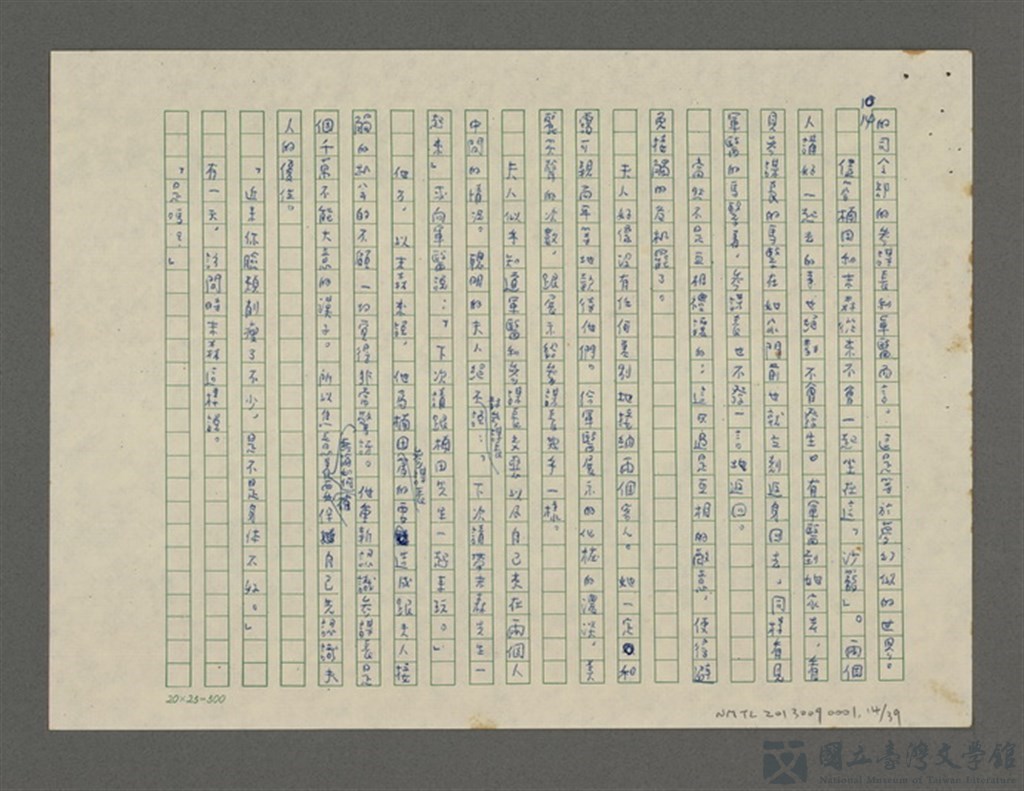 10
14
的司令部的參謀長和軍醫而言，這是等於夢幻似的世界。
儘管楠田和末森從來不會一起坐在這「沙龍」。兩個
人讓好一起去的事也絕對不會發生。有軍醫到她家去，看
見參謀長的馬繫在她家門前也就立刻返身回去，同樣看見
軍醫的馬繫著，參謀長也不發一言地返回。
當然不是互相禮讓的；這只過是互相的敵意，使得避
免接觸的危机罷了。
夫人好像沒有任何差別地接納兩個客人。她一定和
靄可親而平等地款待他們。給軍醫展示的化粧的濃淡，真
嬰笑聲的次數，跟展示給參謀長幾乎一樣。
夫人似乎知道軍醫和參謀長交惡以及自己夾在兩個人
中間的情況。聰明的夫人絕不說：「下次請帶末森先生一
對參謀長
起來」或向軍醫說：「下次請跟楠田先生一起來玩。」
參謀長
但了，以末森來說，他為楠田的而造成跟夫人接
觸的機會的不順，一切覺得非常警訝。他重新認識參謀長是
個千萬不能大意的漢子。所以自己先認識夫
人的優位。
「近來你臉頰削瘦了不少，是不是身体不好。」
有一天，沒間時末森這樣說。
「是嗎？」
20×25=500
NMTL 2013009 0001. 14/39
國立臺灣文學館
National Museum of Taiwan Literature